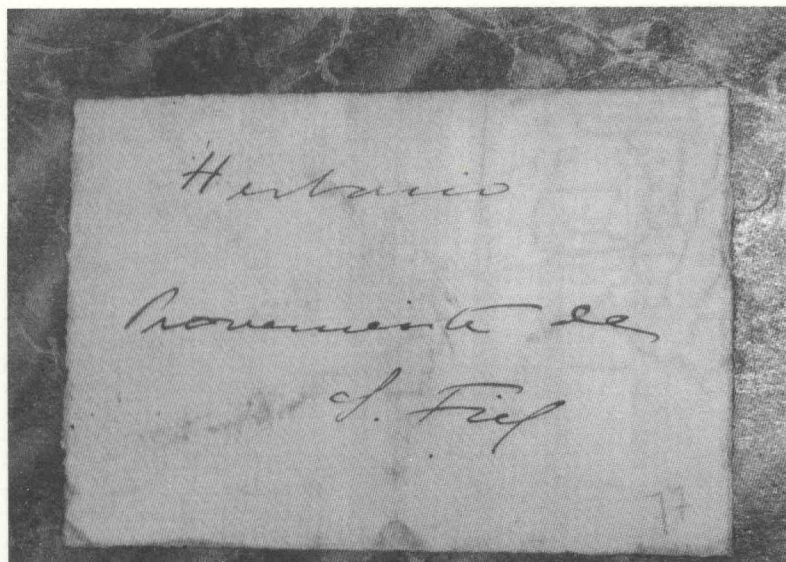 Herbario
Proveniente de
S. Fiel
77